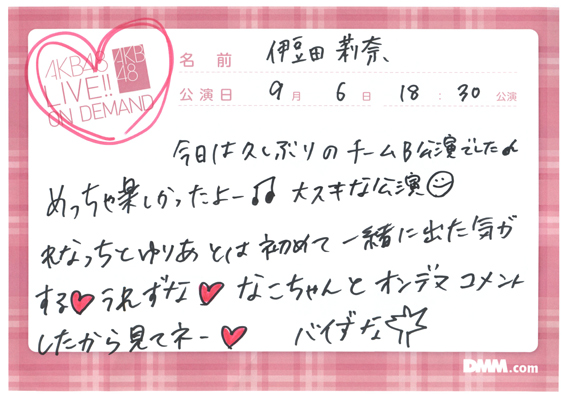 AKB48
AKB
48
LIVE!!
ON DEMAND
名前 伊豆田莉奈
公演日 9月 6日 18:30 公演
今日は久しぶりのチームB公演でした♪
めっちゃ楽しかったよー♫ 大スキな公演☺
れなっちとゆりあとは初めて一緒に出た気が
する♥うれずな♥なこちゃんとオンデマコメント
したから見てネー♥ バイずな☆
DMM.com